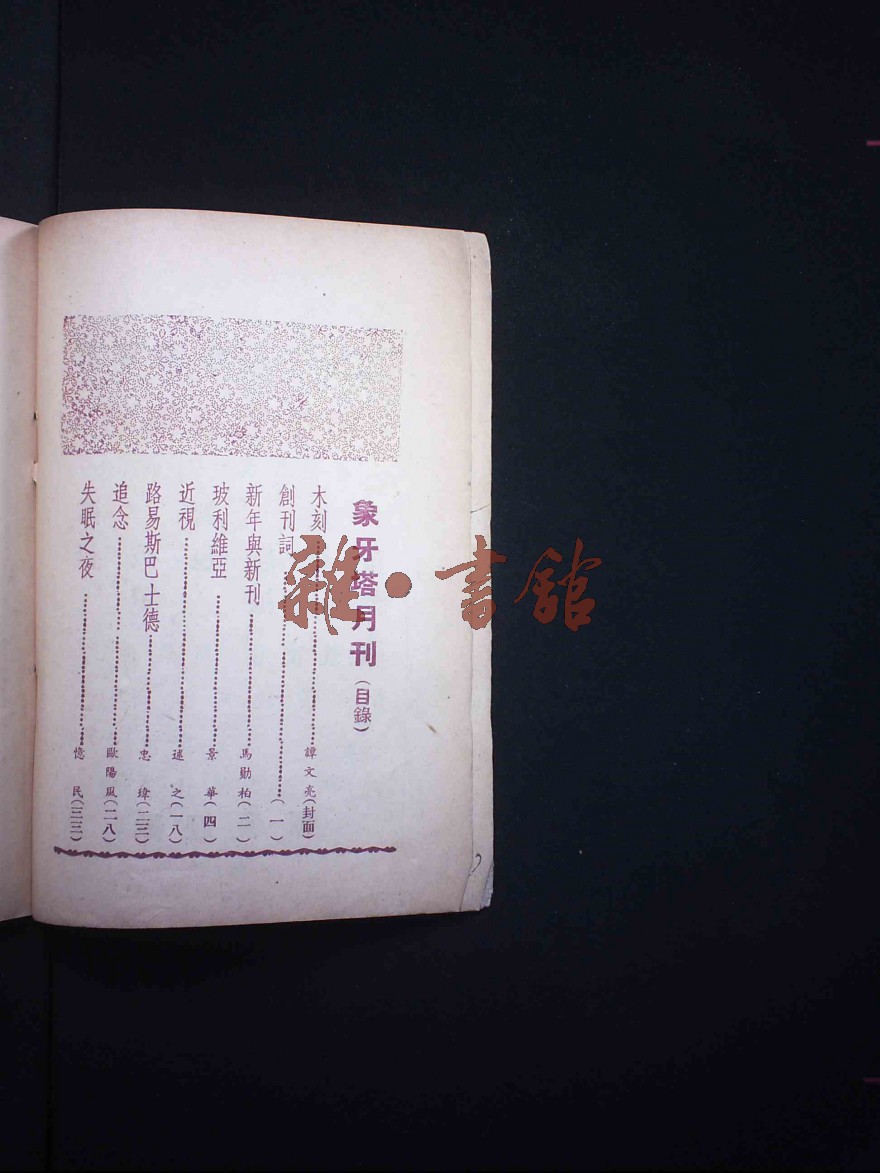 象牙塔月刊(目錄)
木刻……譚文亮(封面)
創刊詞……(一)
新年與新刊……馬勛柏(二)
玻利維亞……景華(四)
近視……述之(一八)
路易斯巴士德……忠瑋(二三)
追念……歐陽風(二八)
失眠之夜……憶民(三三)
雜·書舘